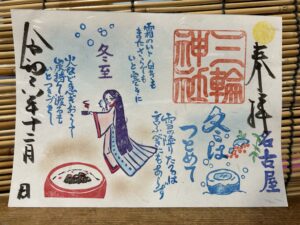 奉拝
名古屋
三輪
神社
冬は
つとめて
雪の降りたるは
言ふべきにもあらず
霜のいと白きも
またさらでも
いと寒きに
冬至
火など急ぎおこして
炭持て渡るも
いとつきづきし
令和六年十二月 日